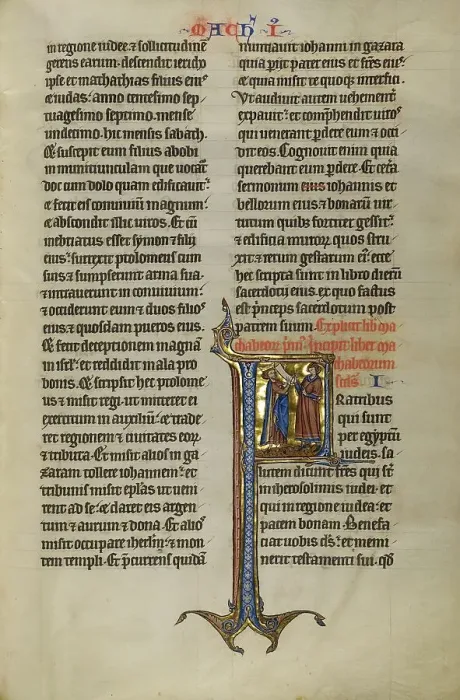 MACH I
in regione iudee: & sollicitudinē
gerens earum: descendit iericho
ipse et mathathias filius eiꝰ
& iudas: anno centesimo sep
tuagesimo septimo. mense
undecimo. hic mensis sabath.
Et suscepit eum filius abobi
in munitiunculam que uocat᷑
doc cum dolo quam edificauit:
& fecit eis conuiuiū magnum:
& abscondit illic uiros. Et cū
inebriatus esset symon & filij
eius: surrexit ptolomeus cum
suis: & sumpserunt arma sua:
& intrauerunt in conuiuiū:
& occiderunt eum & duos filios
eius: & quosdam pueros eius.
Et fecit deceptionem magnā
in isrl̄: et reddidit mala pro
bonis. Et scripsit hec ptolome
us & misit regi: ut mitteret ei
exercitum in auxiliū: & trade
ret regionem & ciuitates eoꝝ
& tributa. Et misit alios in ga
zaram tollere iohannem: et
tribunis misit epl̄as ut ueni
rent ad se: & daret eis argen
tum & aurum & dona. Et alios
misit occupare iherl̄m: & mon
tem templi. Et p̄currens quidā
nuntiauit iohanni in gazara
quia perijt pater eius et fr̄es eiꝰ:
& quia misit te quoqꝫ interfici.
Ut audiuit autem uehementer
expauit: et comprehendit uiros
qui uenerant ꝑdere eum & occi
dit eos. Cognouit enim quia
querebant eum ꝑdere. Et cetera
sermonum eius iohannis et
bellorum eius: & bonarū uir
tutum quibꝫ fortiter gessit:
& edificia muroꝝ quos stru
xit: & rerum gestarum ei: ecce
hec scripta sunt in libro dierū
sacerdotij eius. ex quo factus
est p̄nceps sacerdotum post
patrem suum. Explicit lib ma
chabeoꝝ prim̄. Incipit liber ma
chabeorum
scd̄s. I
Fratribus
qui sunt
per egyptū
iudeis. sa
lutem dicunt fr̄es qui sūt
in iherosolimis iudei. et
qui in regione iudea: et
pacem bonam. Benefa
ciat uobis ds̄: et memi
nerit testamenti sui. qd̄